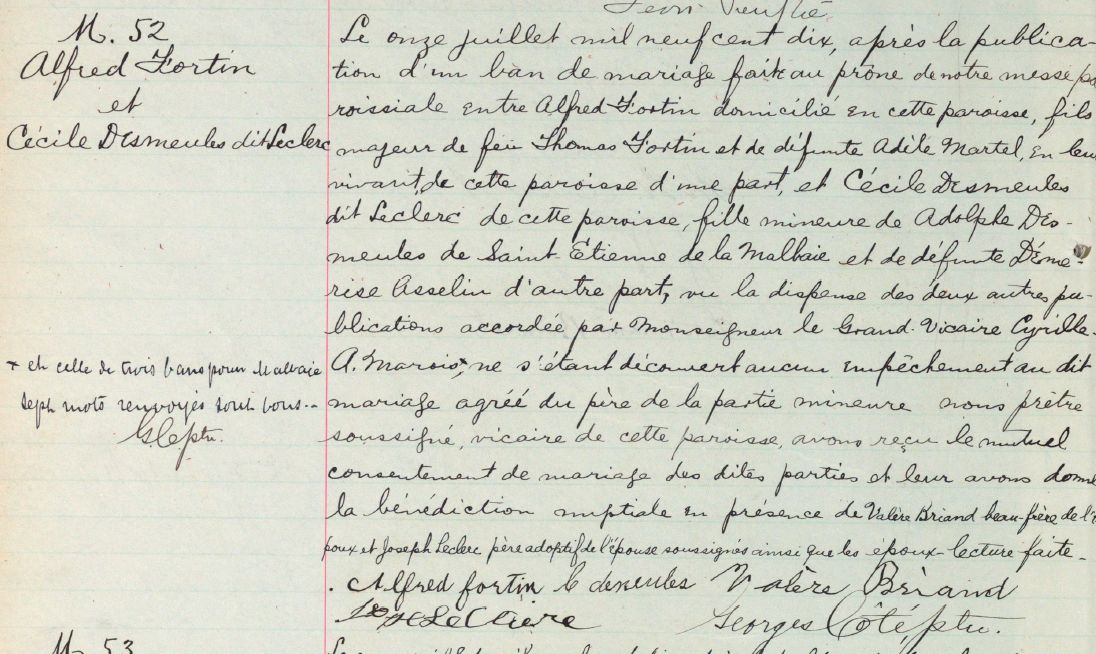 M. 52
Alfred Fortin
et
Cécile Desmeules dit Leclerc
+ et celle de trois bans pour Malbaie
sept mots renvoyés sont bons --
G C ptre.
Le onze juillet mil neuf cent dix, après la publica-
tion d'un ban de mariage fait au prône de notre messe pa
roissiale entre Alfred Fortin domicilié en cette paroisse, fils
majeur de feu Thomas Fortin et de défunte Adèle Martel, en leur
vivant, de cette paroisse d'une part, et Cécile Desmeules
dit Leclerc de cette paroisse, fille mineure de Adolphe Des-
meules de Saint Etienne de la Malbaie et de défunte Déme-
rise Asselin d'autre part, vu la dispense des deux autres pu-
blications accordée par Monseigneur le Grand-Vicaire Cyrille-
A. Marois,+ ne s'étant découvert aucun empêchement au dit
mariage agréé du père de la partie mineure nous prêtre
soussigné, vicaire de cette paroisse, avons reçu le mutuel
consentement de mariage des dites parties et leur avons donné
la bénédiction nuptiale en présence de Valère Briand beau-frère de l'é
poux et Joseph Leclerc père adoptif de l'épouse soussignés ainsi que les époux - lecture faite -
. Alfred fortin C desmeules Valère Briand
Jos LeClerc Georges Côté, ptre.
M. 53